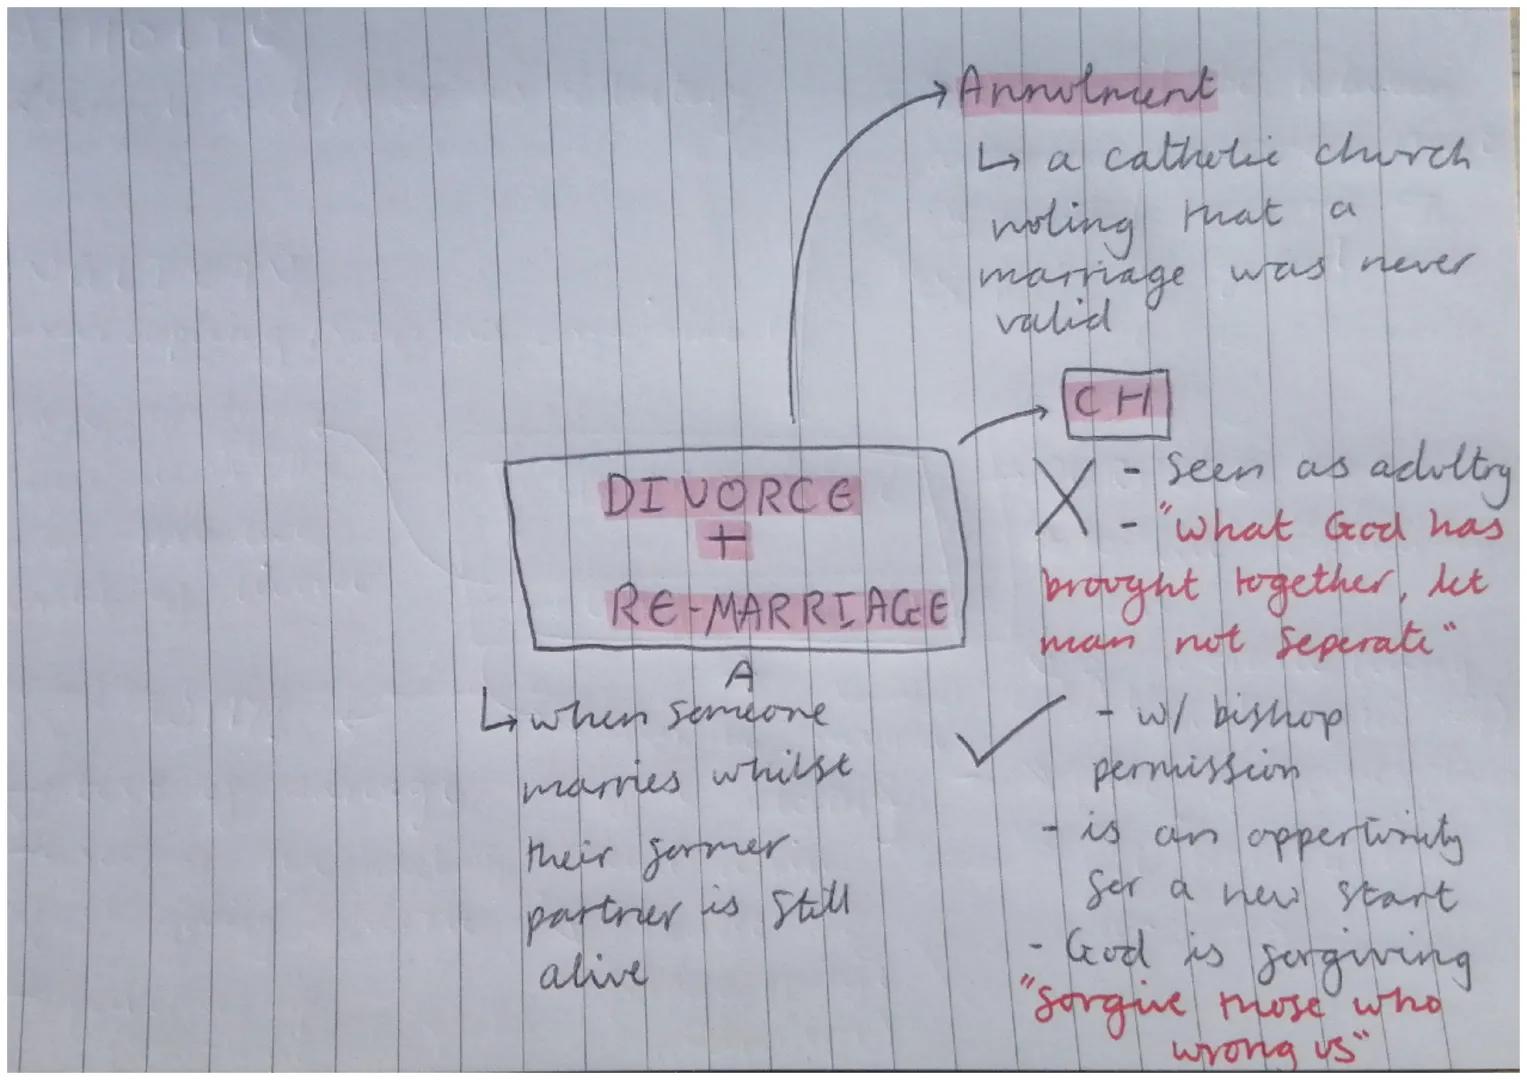 Annulment
↳ a catholic church
ruling that a
marriage was never
valid
CH
X - seen as adultry
- "what God has
brought together, let
man not seperate"
✓ - w/ bishop
permission
- is an oppertunity
for a new start
- God is forgiving
"forgive those who
wrong us"
DIVORCE
+
RE-MARRIAGE
A
↳ when someone
marries whilst
their former
partner is still
alive